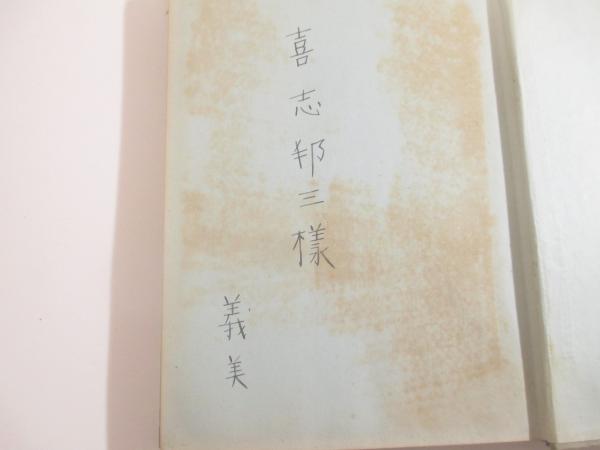 喜志邦三様
義美